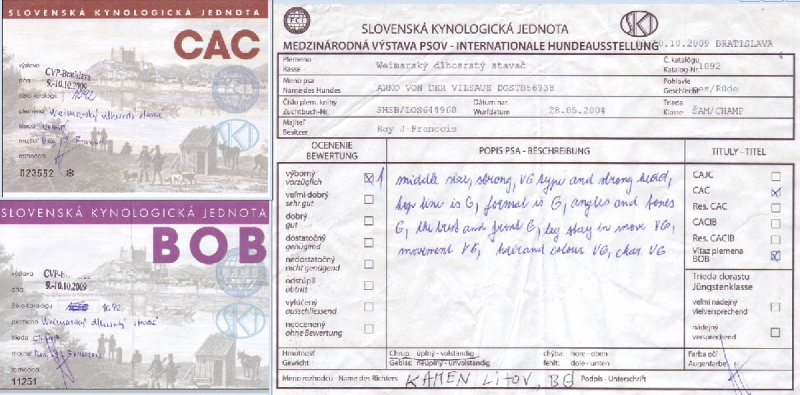 CAC
výstava
CVP-Bratislava
dňa
9.-10.10.2009
1092
Weimarský dlhosrstý stavač
trieda
majiteľ
rozhodca
023552 *
SLOVENSKÁ KYNOLOGICKÁ JEDNOTA
BOB
výstava
CVP-Bratislava
dňa
9.-10.10.2009
číslo katalógu 1092
plemeno Weimarský dlhosrstý stavač
trieda
majiteľ
rozhodca
11251
FCI
SLOVENSKÁ KYNOLOGICKÁ JEDNOTA
SKJ
MEDZINÁRODNÁ VÝSTAVA PSOV - INTERNATIONALE HUNDEAUSSTELLUNG
10.10.2009 BRATISLAVA
Plemeno
Rasse
Weimarský dlhosrstý stavač
Č. katalógu
Katalog-Nr.
1092
Meno psa
Name des Hundes
ARKO VON DER VILSAUE DGSTB56938
Pohlavie
Geschlecht
Pes/Rüde
Číslo plem. knihy
Zuchtbuch-Nr.
SHSB/LOS644968
Dátum nar.
Wurfdatum
28.05.2004
Trieda
Klasse
ŠAM/CHAMP
Majiteľ
Besitzer
Ray J-Francois
OCENENIE
BEWERTUNG
POPIS PSA - BESCHREIBUNG
TITULY - TITEL
výborný
vorzüglich
1
veľmi dobrý
sehr gut
dobrý
gut
dostatočný
genügend
nedostatočný
nicht genügend
odstúpil
abtritt
vylúčený
ausschliessend
neocenený
ohne Bewertung
middle size, strong, VG type and strong head,
top line is G, format is G, angles and bones
G, the brest and front G, leg stay in move VG,
movement VG, hair and colour VG, char. VG
CAJC
CAC
Res. CAC
CACIB
Res. CACIB
Víťaz plemena
BOB
Trieda dorastu
Jüngstenklasse
veľmi nádejný
vielversprechend
nádejný
versprechend
Hmotnosť
Gewicht
Chrup: úplný - vollständig
Gebiss: neúplný - unvollständig
chýba: hore - oben
fehlt: dole - unten
Farba očí
Augenfarbe
Meno rozhodcu - Name des Richters
KAMEN LITOV, BG
Podpis - Unterschrift